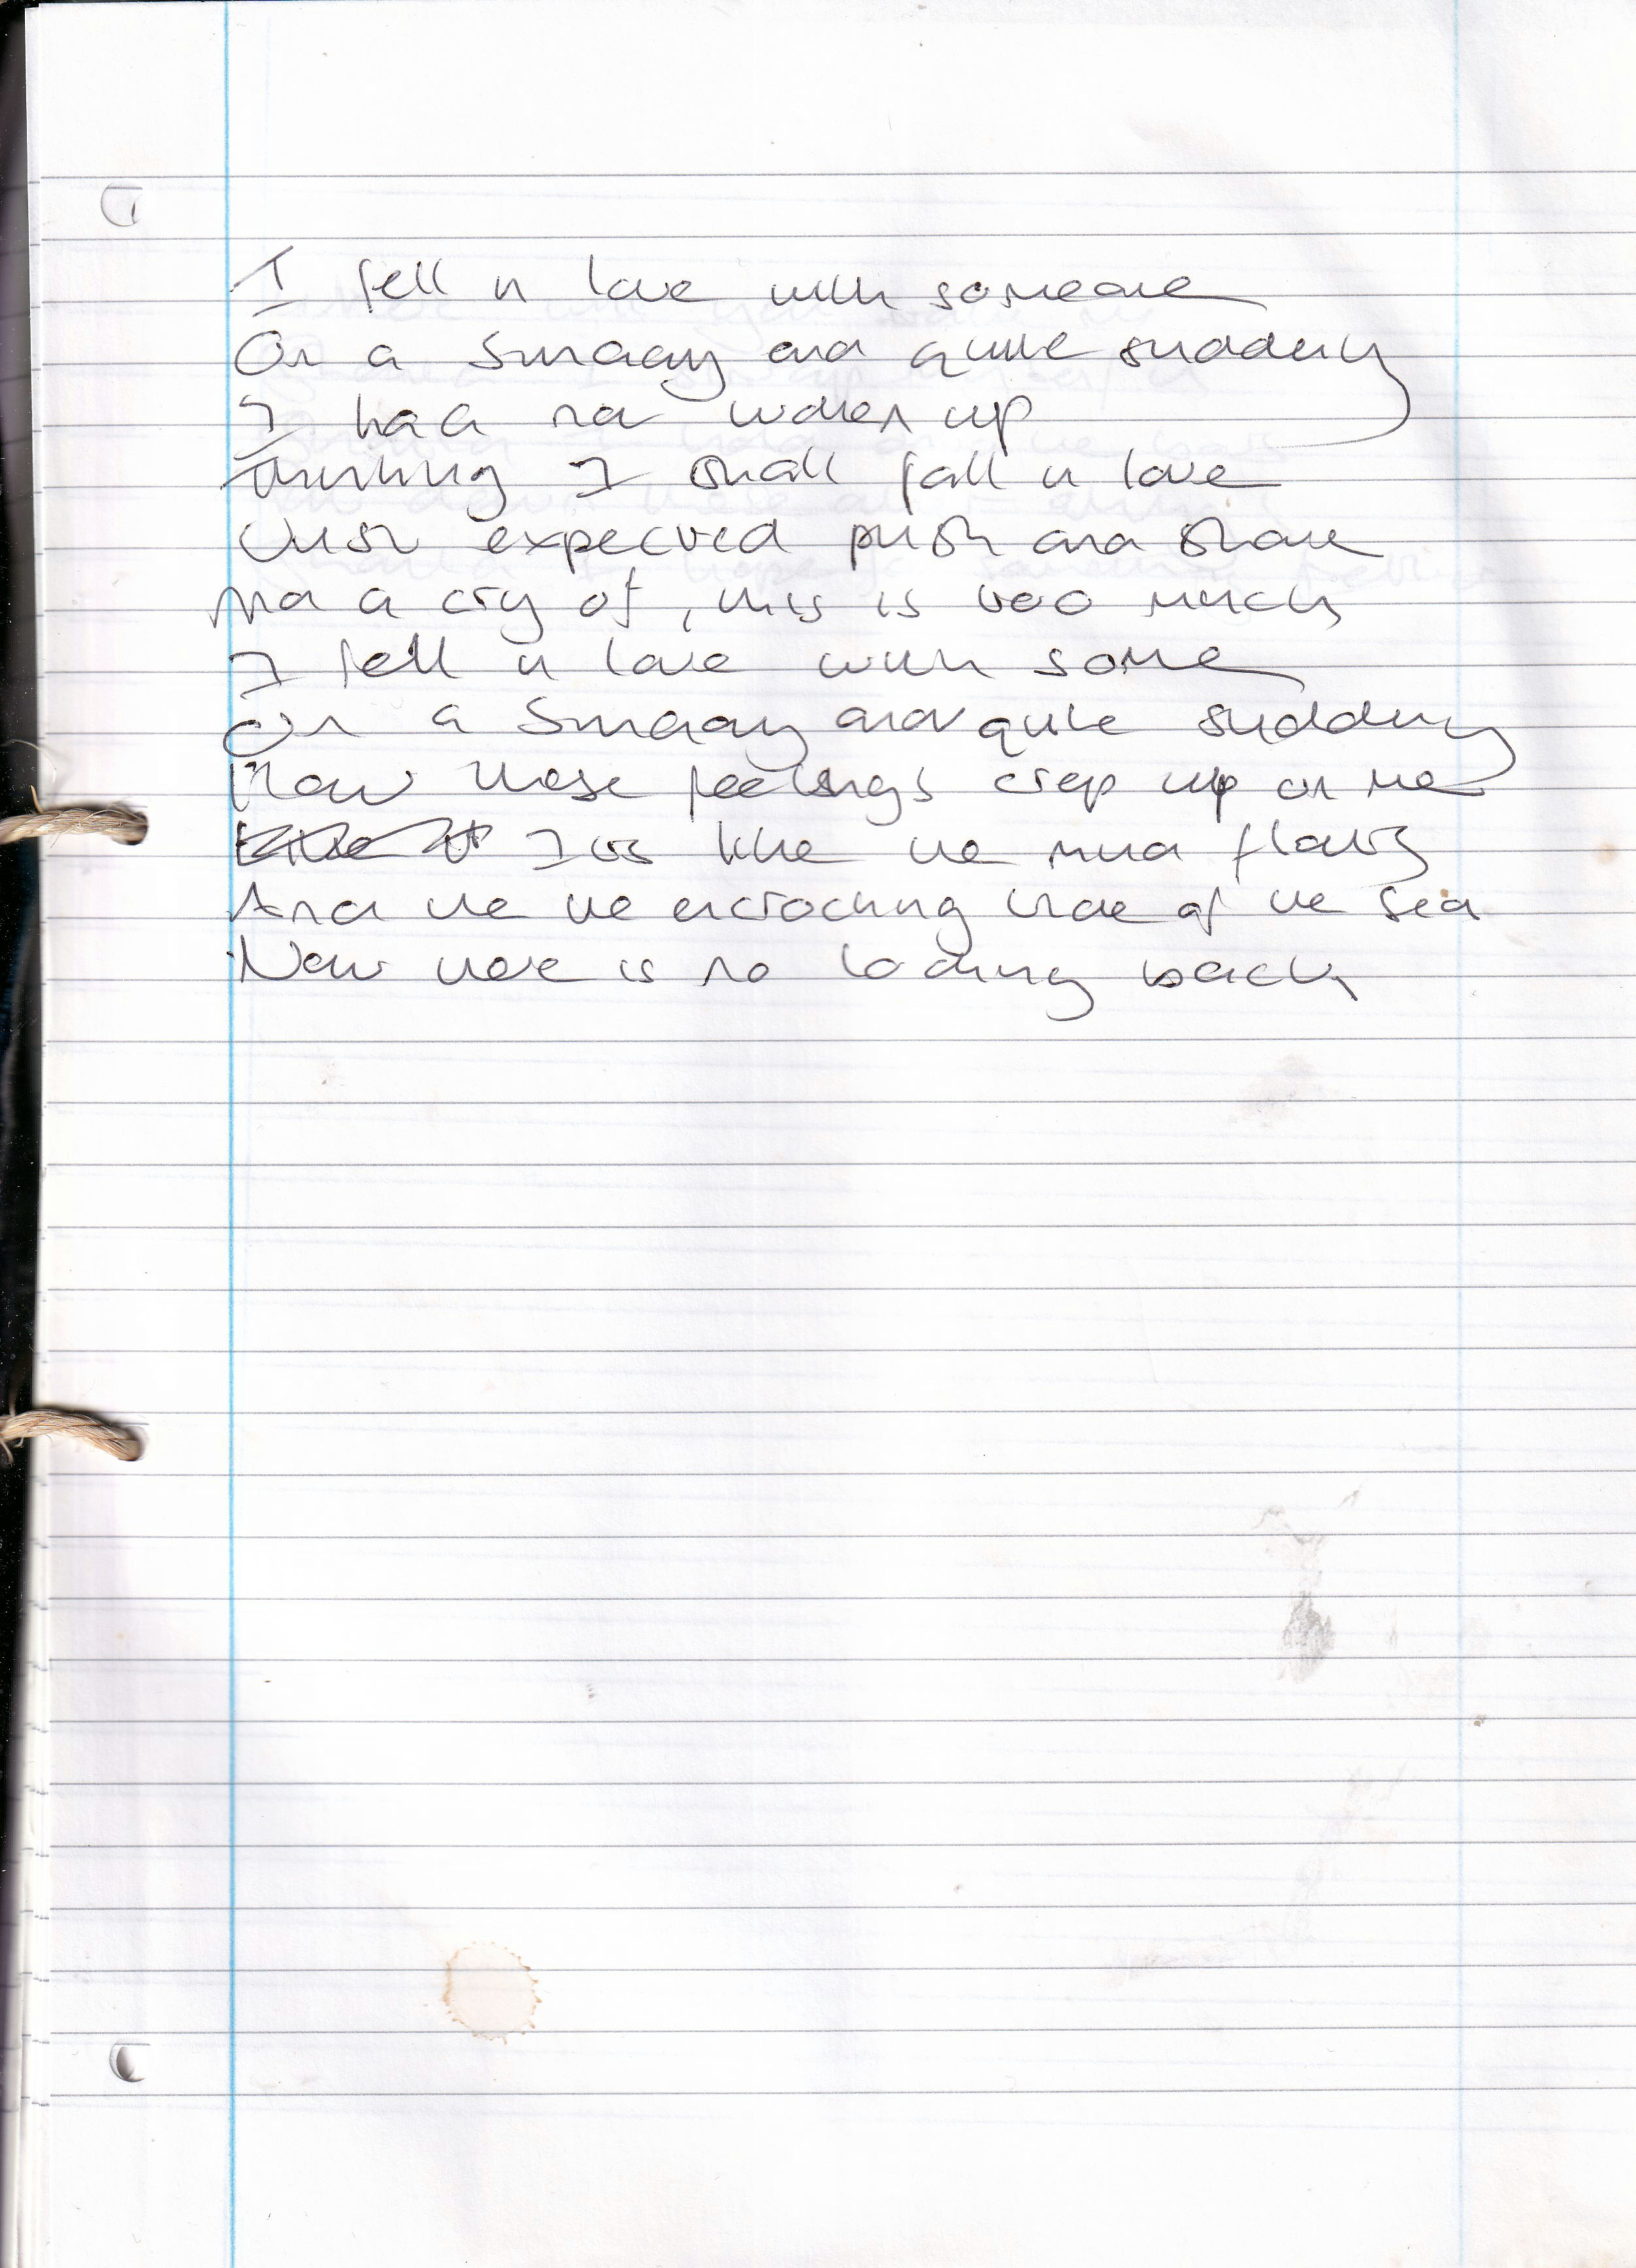 I fell in love with someone
On a Sunday and quite suddenly
I had not woken up
Thinking I shall fall in love
Just expected push and shove
And a cry of, this is too much
I fell in love with some
On a Sunday and quite suddenly
How these feelings crep up on me
Its like the mud flats
And the the encroching tide of the sea
Now there is no looking back